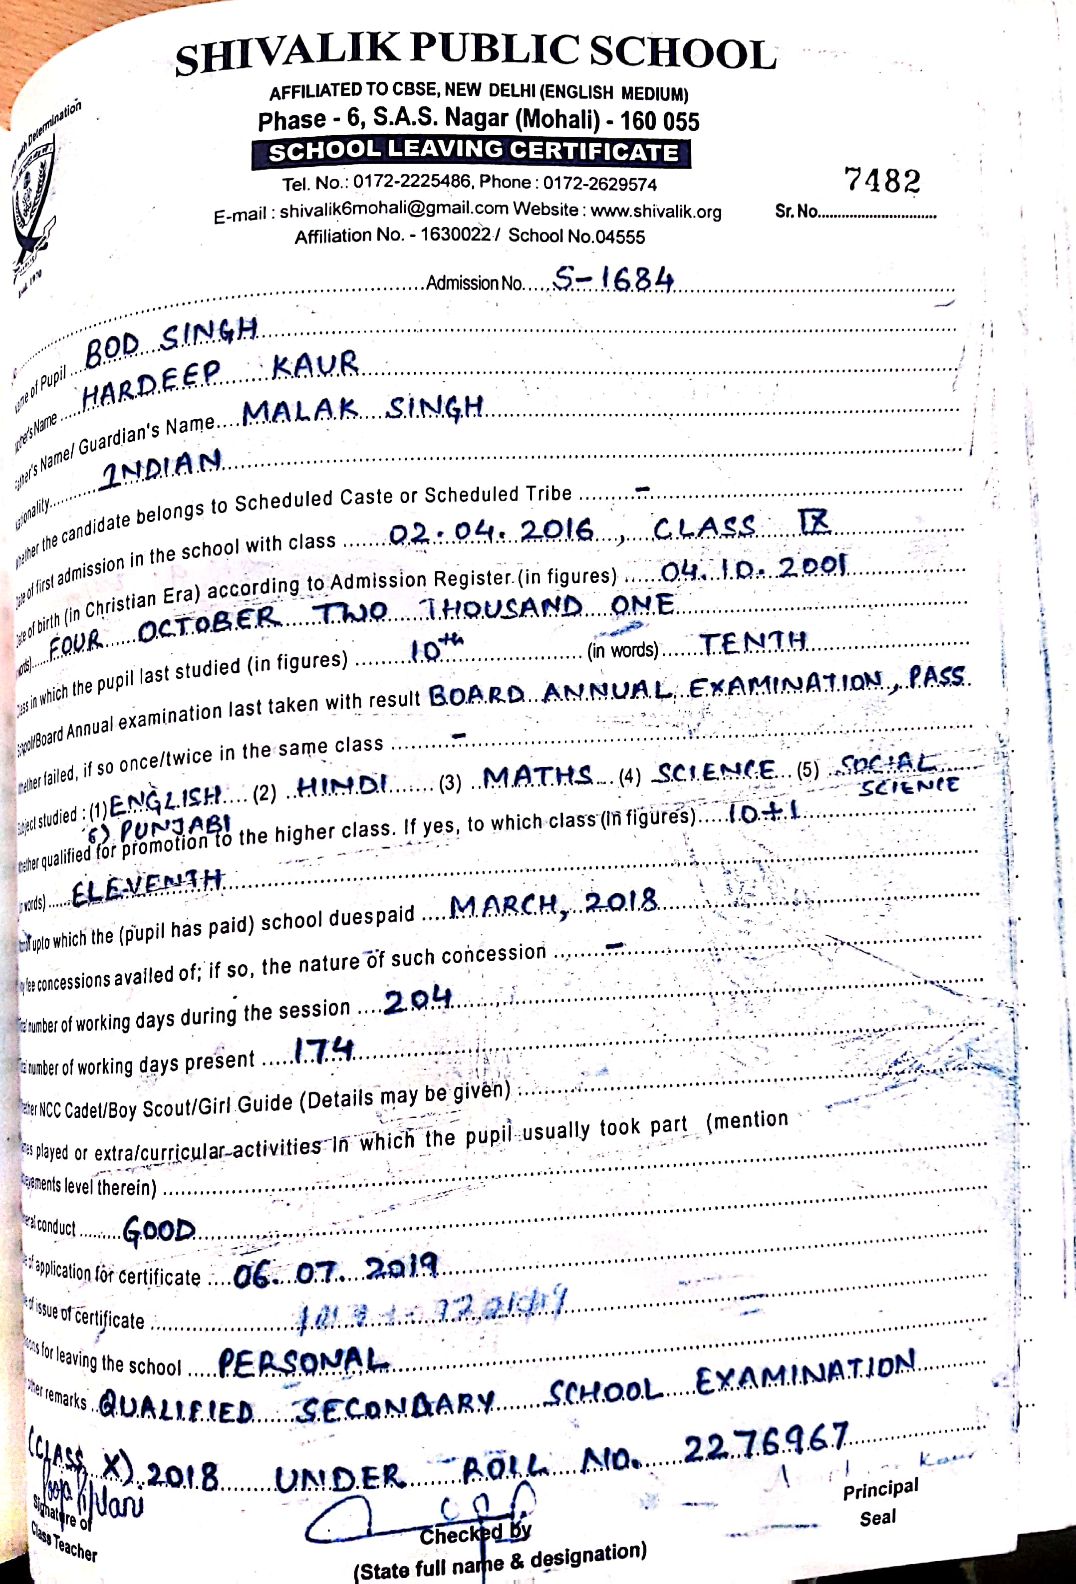 SHIVALIK PUBLIC SCHOOL
AFFILIATED TO CBSE, NEW DELHI (ENGLISH MEDIUM)
Phase - 6, S.A.S. Nagar (Mohali) - 160 055
SCHOOL LEAVING CERTIFICATE
Tel. No.: 0172-2225486, Phone : 0172-2629574
7482
E-mail : shivalik6mohali@gmail.com Website : www.shivalik.org
Sr. No.
Affiliation No. - 1630022 / School No.04555
Determination
Admission No. S-1684
of Pupil BOD SINGH
Name HARDEEP KAUR
Name/ Guardian's Name MALAK SINGH
INDIAN
the candidate belongs to Scheduled Caste or Scheduled Tribe -
of first admission in the school with class 02.04.2016, CLASS IX
of birth (in Christian Era) according to Admission Register (in figures) 04.10.2001
FOUR OCTOBER TWO THOUSAND ONE
in which the pupil last studied (in figures) 10th (in words) TENTH
Board Annual examination last taken with result BOARD ANNUAL EXAMINATION, PASS
failed, if so once/twice in the same class -
studied : (1) ENGLISH (2) HINDI (3) MATHS (4) SCIENCE (5) SOCIAL SCIENCE
6) PUNJABI
qualified for promotion to the higher class. If yes, to which class (in figures) 10+1
words) ELEVENTH
upto which the (pupil has paid) school duespaid MARCH, 2018
fee concessions availed of; if so, the nature of such concession -
number of working days during the session 204
number of working days present 174
NCC Cadet/Boy Scout/Girl Guide (Details may be given)
played or extra/curricular activities in which the pupil usually took part (mention
level therein)
conduct GOOD
of application for certificate 06.07.2019
of issue of certificate
for leaving the school PERSONAL
remarks QUALIFIED SECONDARY SCHOOL EXAMINATION
(CLASS X) 2018 UNDER ROLL NO. 2276967
Signature of
Class Teacher
Checked by
(State full name & designation)
Kaur
Principal
Seal